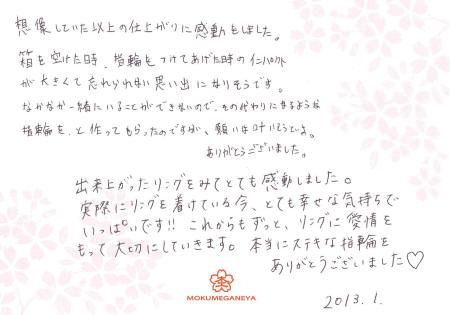 想像していた以上の仕上がりに感動をしました。
箱を空けた時、指輪をつけてあげた時のインパクト
が大きくて忘れられない思い出になりそうです。
なかなか一緒にいることができないので、その代わりになるような
指輪を、と作ってもらったのですが、願いは叶いそうです。
ありがとうございました。
出来上がったリングをみてとても感動しました。
実際にリングを着けている今、とても幸せな気持ちで
いっぱいです!! これからもずっと、リングに愛情を
もって大切にしていきます。本当にステキな指輪を
ありがとうございました♡
MOKUMEGANEYA
2013.1.